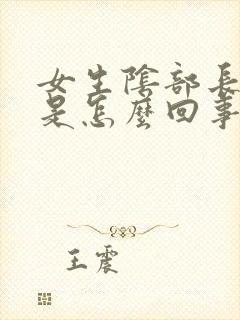 女生陰部長
是怎麼回事
王震